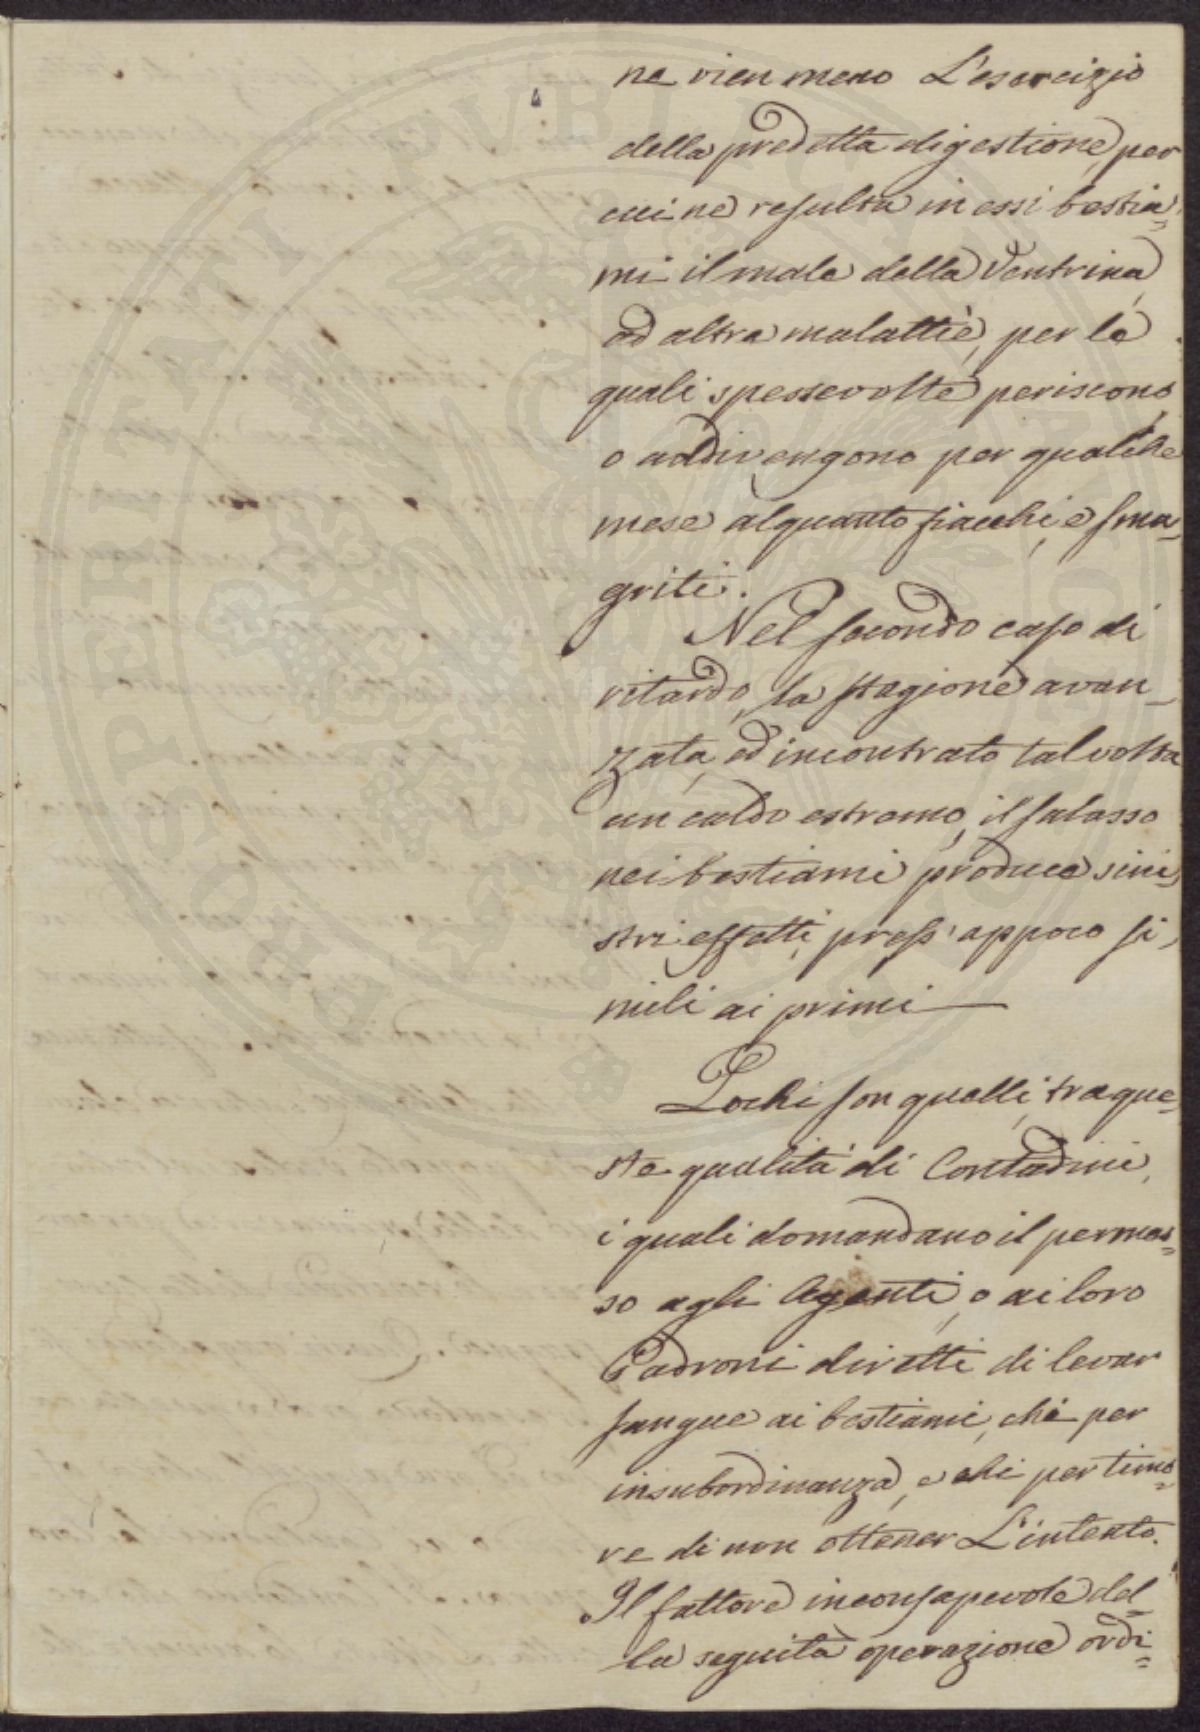 ne vien meno L'esercizio
della predetta digestione, per
cui ne resulta in essi bestia=
mi il male della Ventrina,
ed altre malattie, per le
quali spessevolte periscono,
o addivengono per qualche
mese alquanto fiacchi, e sma=
griti.
Nel secondo caso di
ritardo, la stagione avan=
zata, ed incontrato talvolta
un caldo estremo, il salasso
nei bestiami produce sini=
stri effetti, press' appoco si=
mili ai primi —
Pochi son quelli, tra que=
ste qualità di Contadini,
i quali domandano il permes=
so agli Agenti, o ai loro
Padroni diretti di levar
sangue ai bestiami, chi per
insubordinanza, e chi per timo=
re di non ottener L'intento.
Il fattore inconsapevole del=
la seguita operazione ordi=
PROSPERITATI PUBLICAE